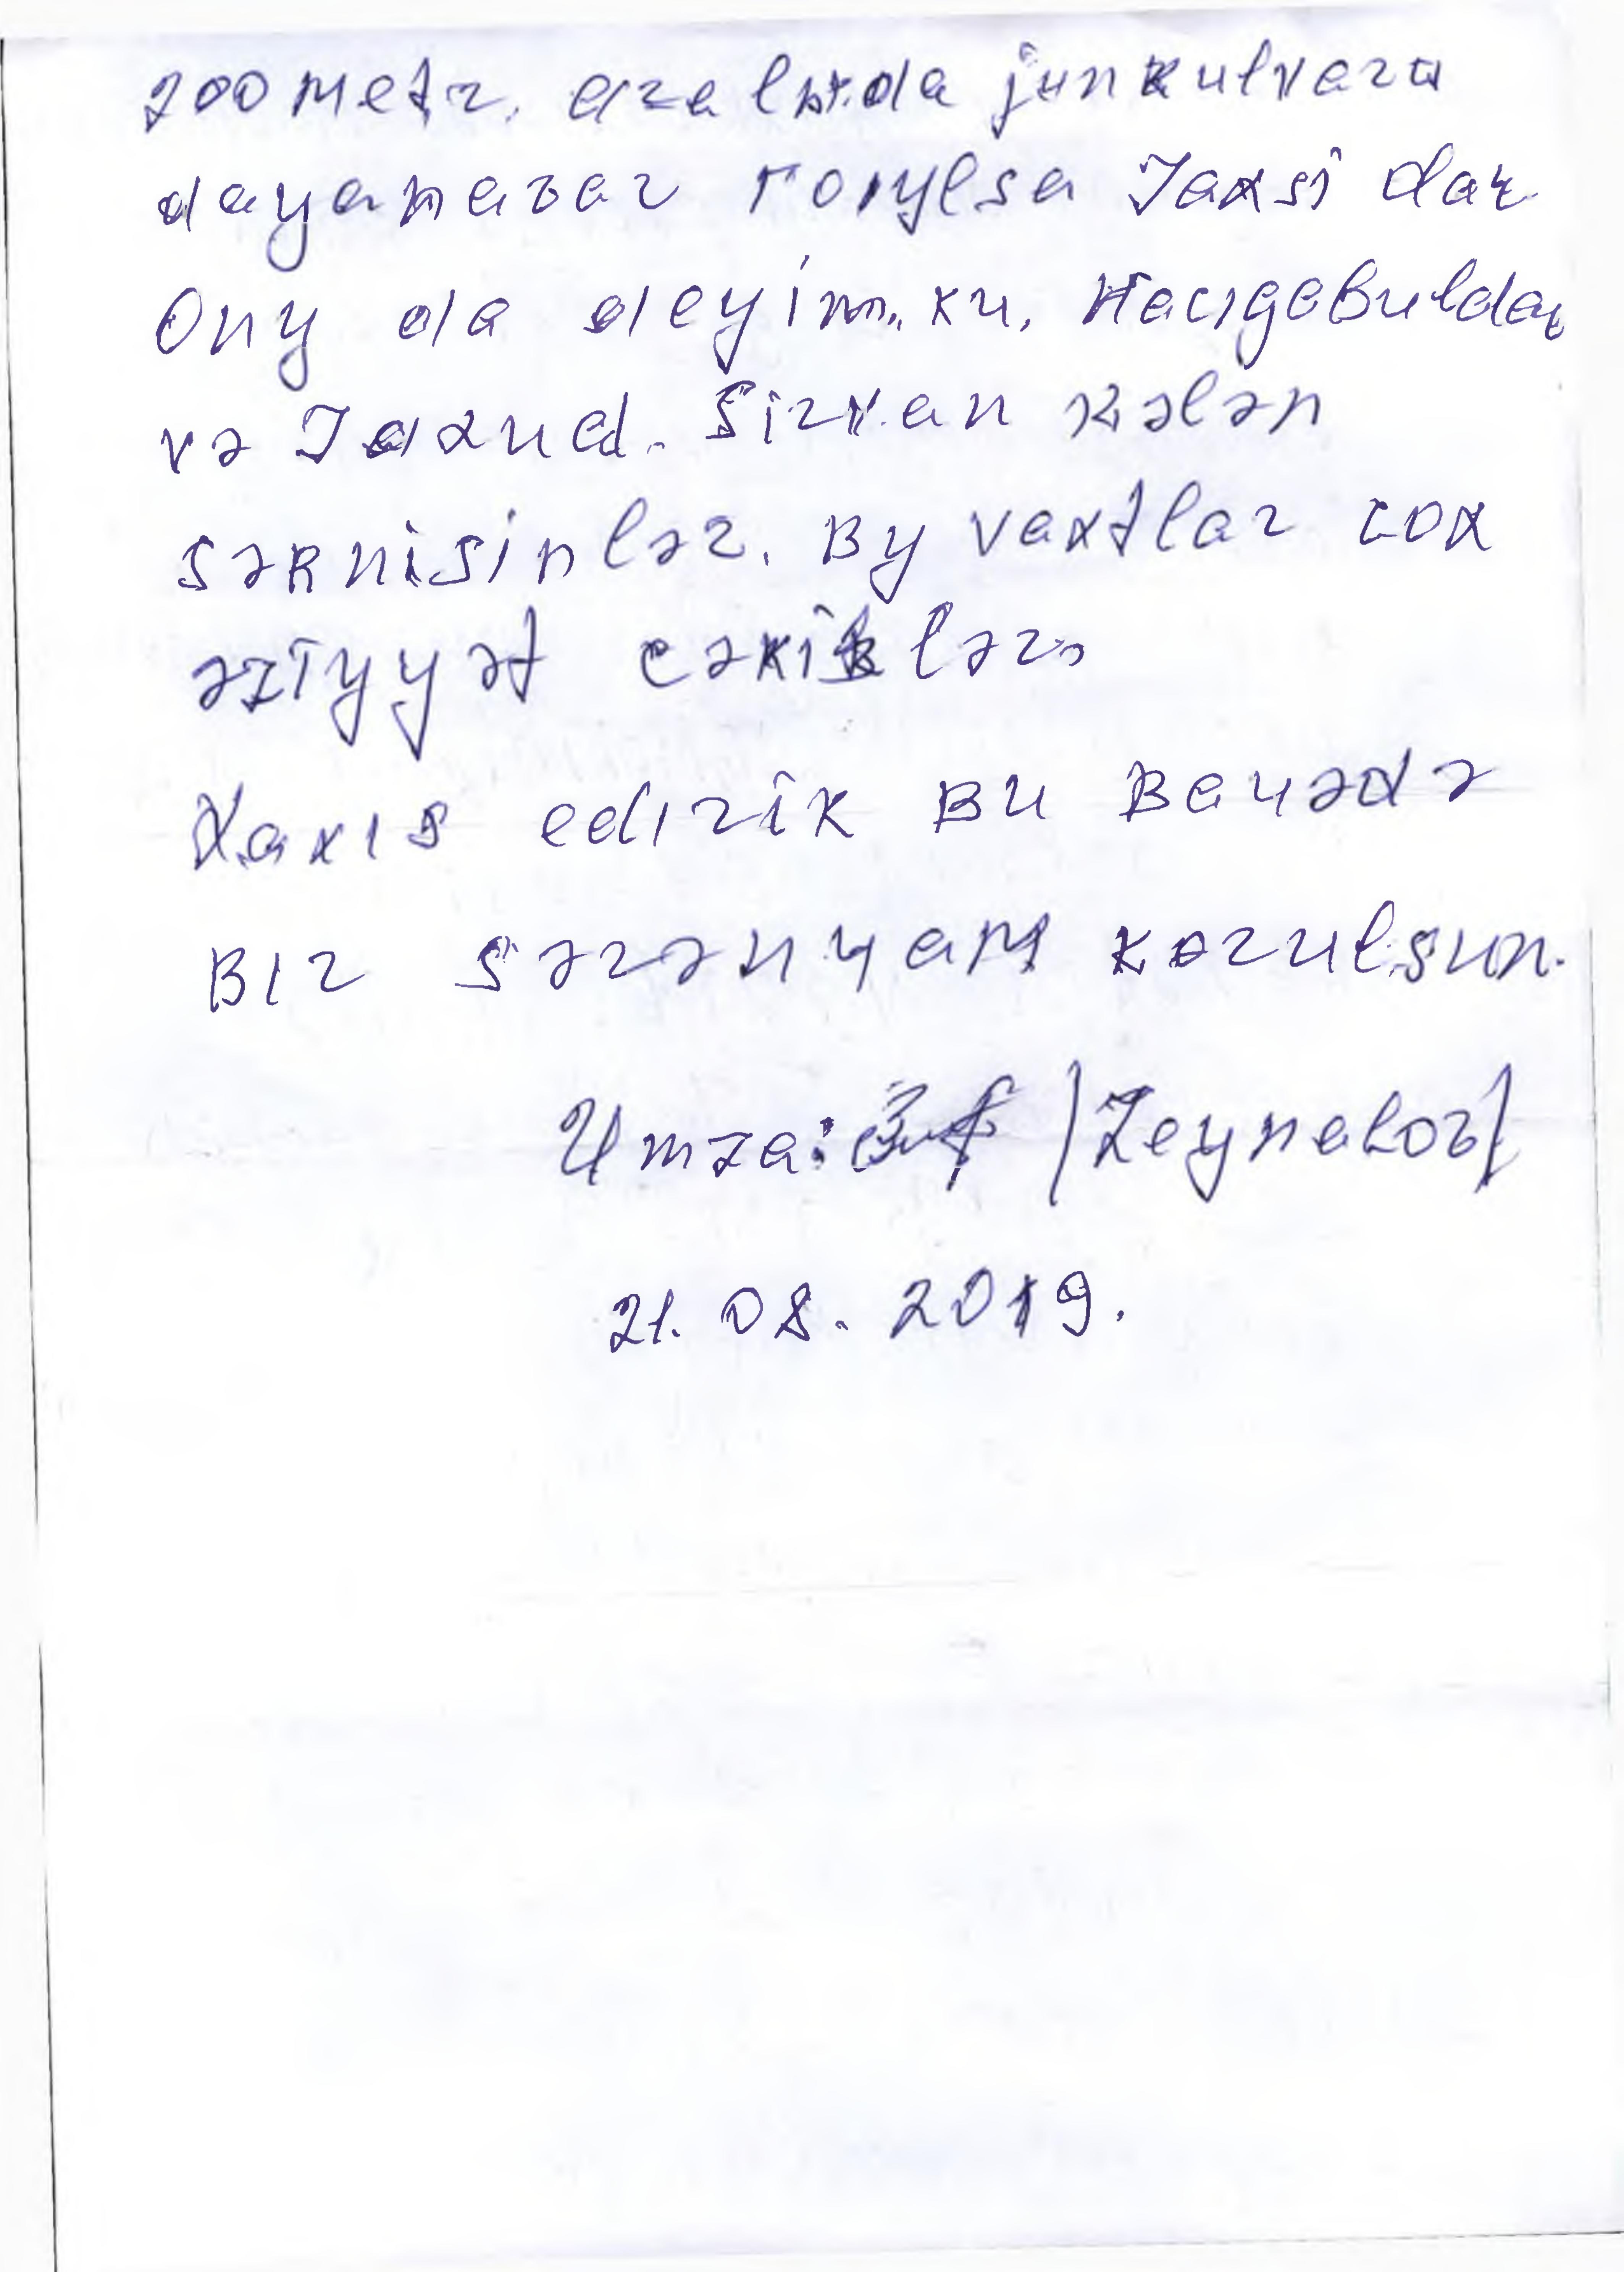 200 metr. aralıda junkulvara
dayanavar гoıylsa Jaxsi dar
Ony da deyim ku, Hacıgabuldan
və Jaxud. Sirvan kələn
sərnisinlər. By vaxtlar cox
əziyyət cəkiklər.
Xaxıs edırik Bu Bauədə
Bır sərənyam kərulsun.
Umza: /Zeynalov/
21. 08. 2019.